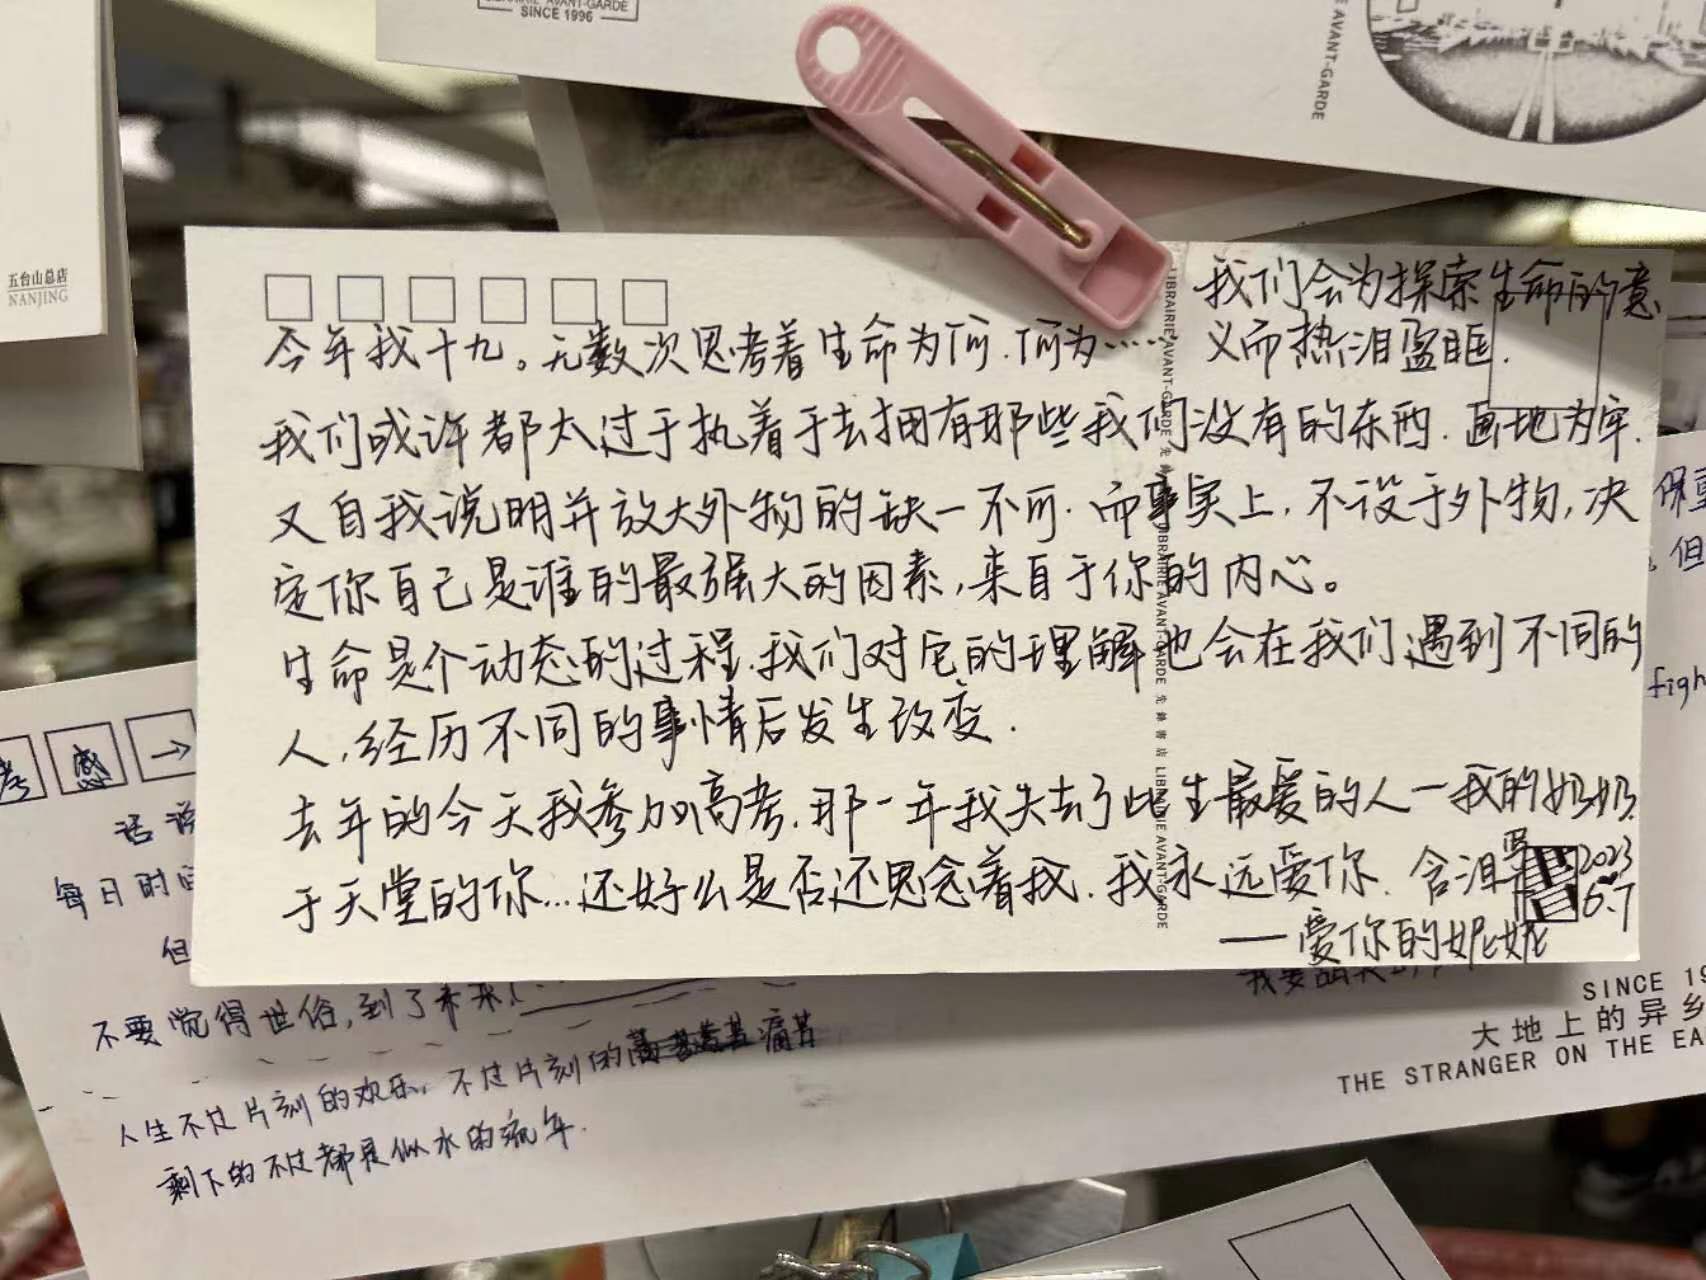 LIBRAIRIE AVANT-GARDE
SINCE 1996
AVANT-GARDE
五台山总店
NANJING
我们会为探索生命的意
今年我十九。无数次思考着生命为何.何为…… 义而热泪盈眶.
我们或许都太过于执着于去拥有那些我们没有的东西.画地为牢.
又自我说明并放大外物的缺一不可.而事实上,不设于外物,决
定你自己是谁的最强大的因素,来自于你的内心。
生命是个动态的过程.我们对它的理解也会在我们遇到不同的
人,经历不同的事情后发生改变.
去年的今天我参加高考.那一年我失去了此生最爱的人—我的奶奶.
于天堂的你…还好么是否还思念着我.我永远爱你.含泪写
2023
6.7
——爱你的妮妮
LIBRAIRIE AVANT-GARDE 先鋒書店 LIBRAIRIE AVANT-GARDE 先鋒書店 LIBRAIRIE AVANT-GARDE
保重
但
figh
考 感 →
话说
每日时间
但
不要觉得世俗,到了未来!
人生不过片刻的欢乐,不过片刻的痛苦
剩下的不过都是似水的流年.
SINCE 19
大地上的异乡
THE STRANGER ON THE EA